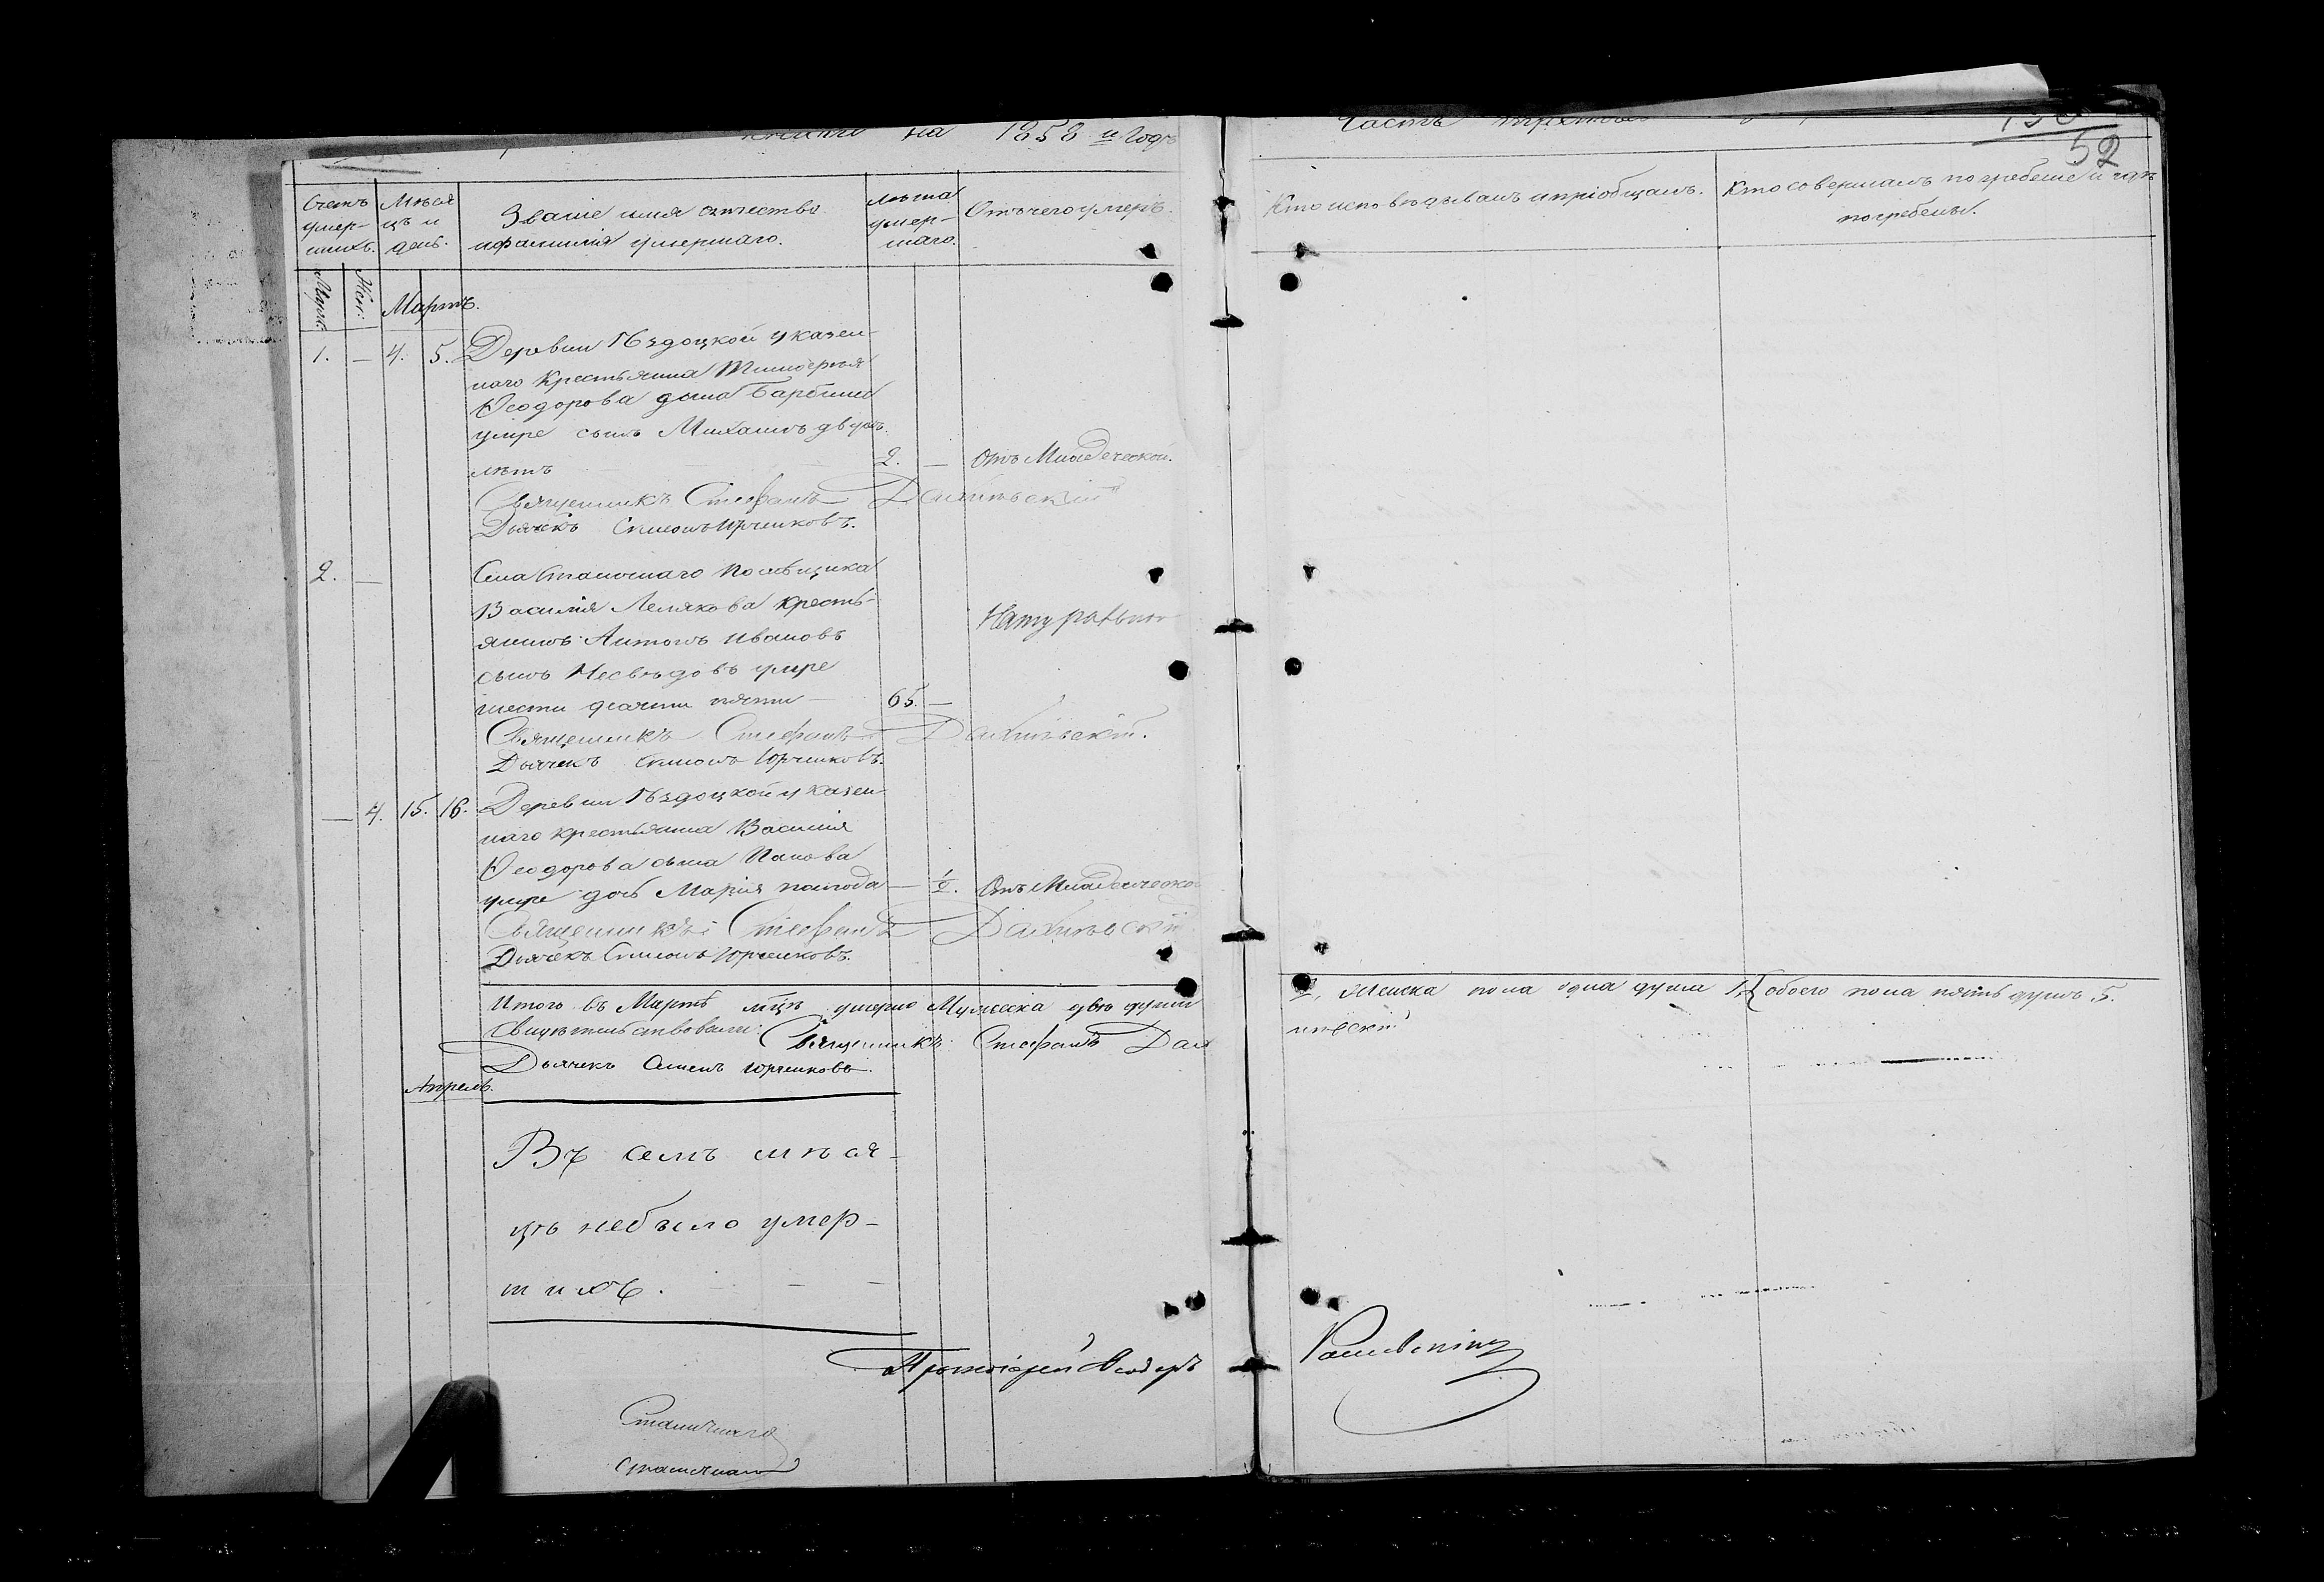 на 1858 й Годъ
Часть
52
Счетъ умер-шихъ.
Мѣся-цъ и день.
Званіе имя отчество
и фамилія умершаго.
лѣта умер-шаго.
Отъ чего умеръ.
Кто исповѣдывалъ и пріобщалъ.
Кто совершалъ погребеніе и гдѣ
погребены.
Муж.
Жен.
Мартъ.
1. — 4. 5. Деревни Гвздоцкой у казен-
наго Крестьянина Тимоѳея
Ѳеодорова сына
умре сынъ Михаилъ двухъ
лѣтъ 2. — Отъ Младеческой.
Священникъ Стефанъ
Дьячекъ Симеонъ Юрченковъ.
2. — Села Станичнаго Помѣщика
Василія Лемякова Кресть-
янинъ Антонъ Ивановъ
сынъ Несвѣдовъ умре
шести десяти пяти — 65. —
Натурально
Священникъ Стефанъ
Дьячекъ Симеонъ Юрченковъ.
— 4. 15. 16. Деревни Гвздоцкой у казен-
наго крестьянина Василія
Ѳеодорова сына Попова
умре дочь Марія полгода — ½. Отъ Младеческой
Священникъ Стефанъ
Дьячекъ Симеонъ Юрченковъ.
Итого въ Мартѣ м̃цѣ умерло Мужеска двѣ души
2, Женска пола одна душа 1, обоего пола пять душъ 5.
Свидѣтельствовали: Священникъ Стефанъ
Дьячекъ Симеонъ Юрченковъ.
Апрель.
Въ семъ мѣся-
цѣ небыло умер-
шихъ. — —
Протоіерей Ѳеодоръ
Станичнаго
Станичнаго